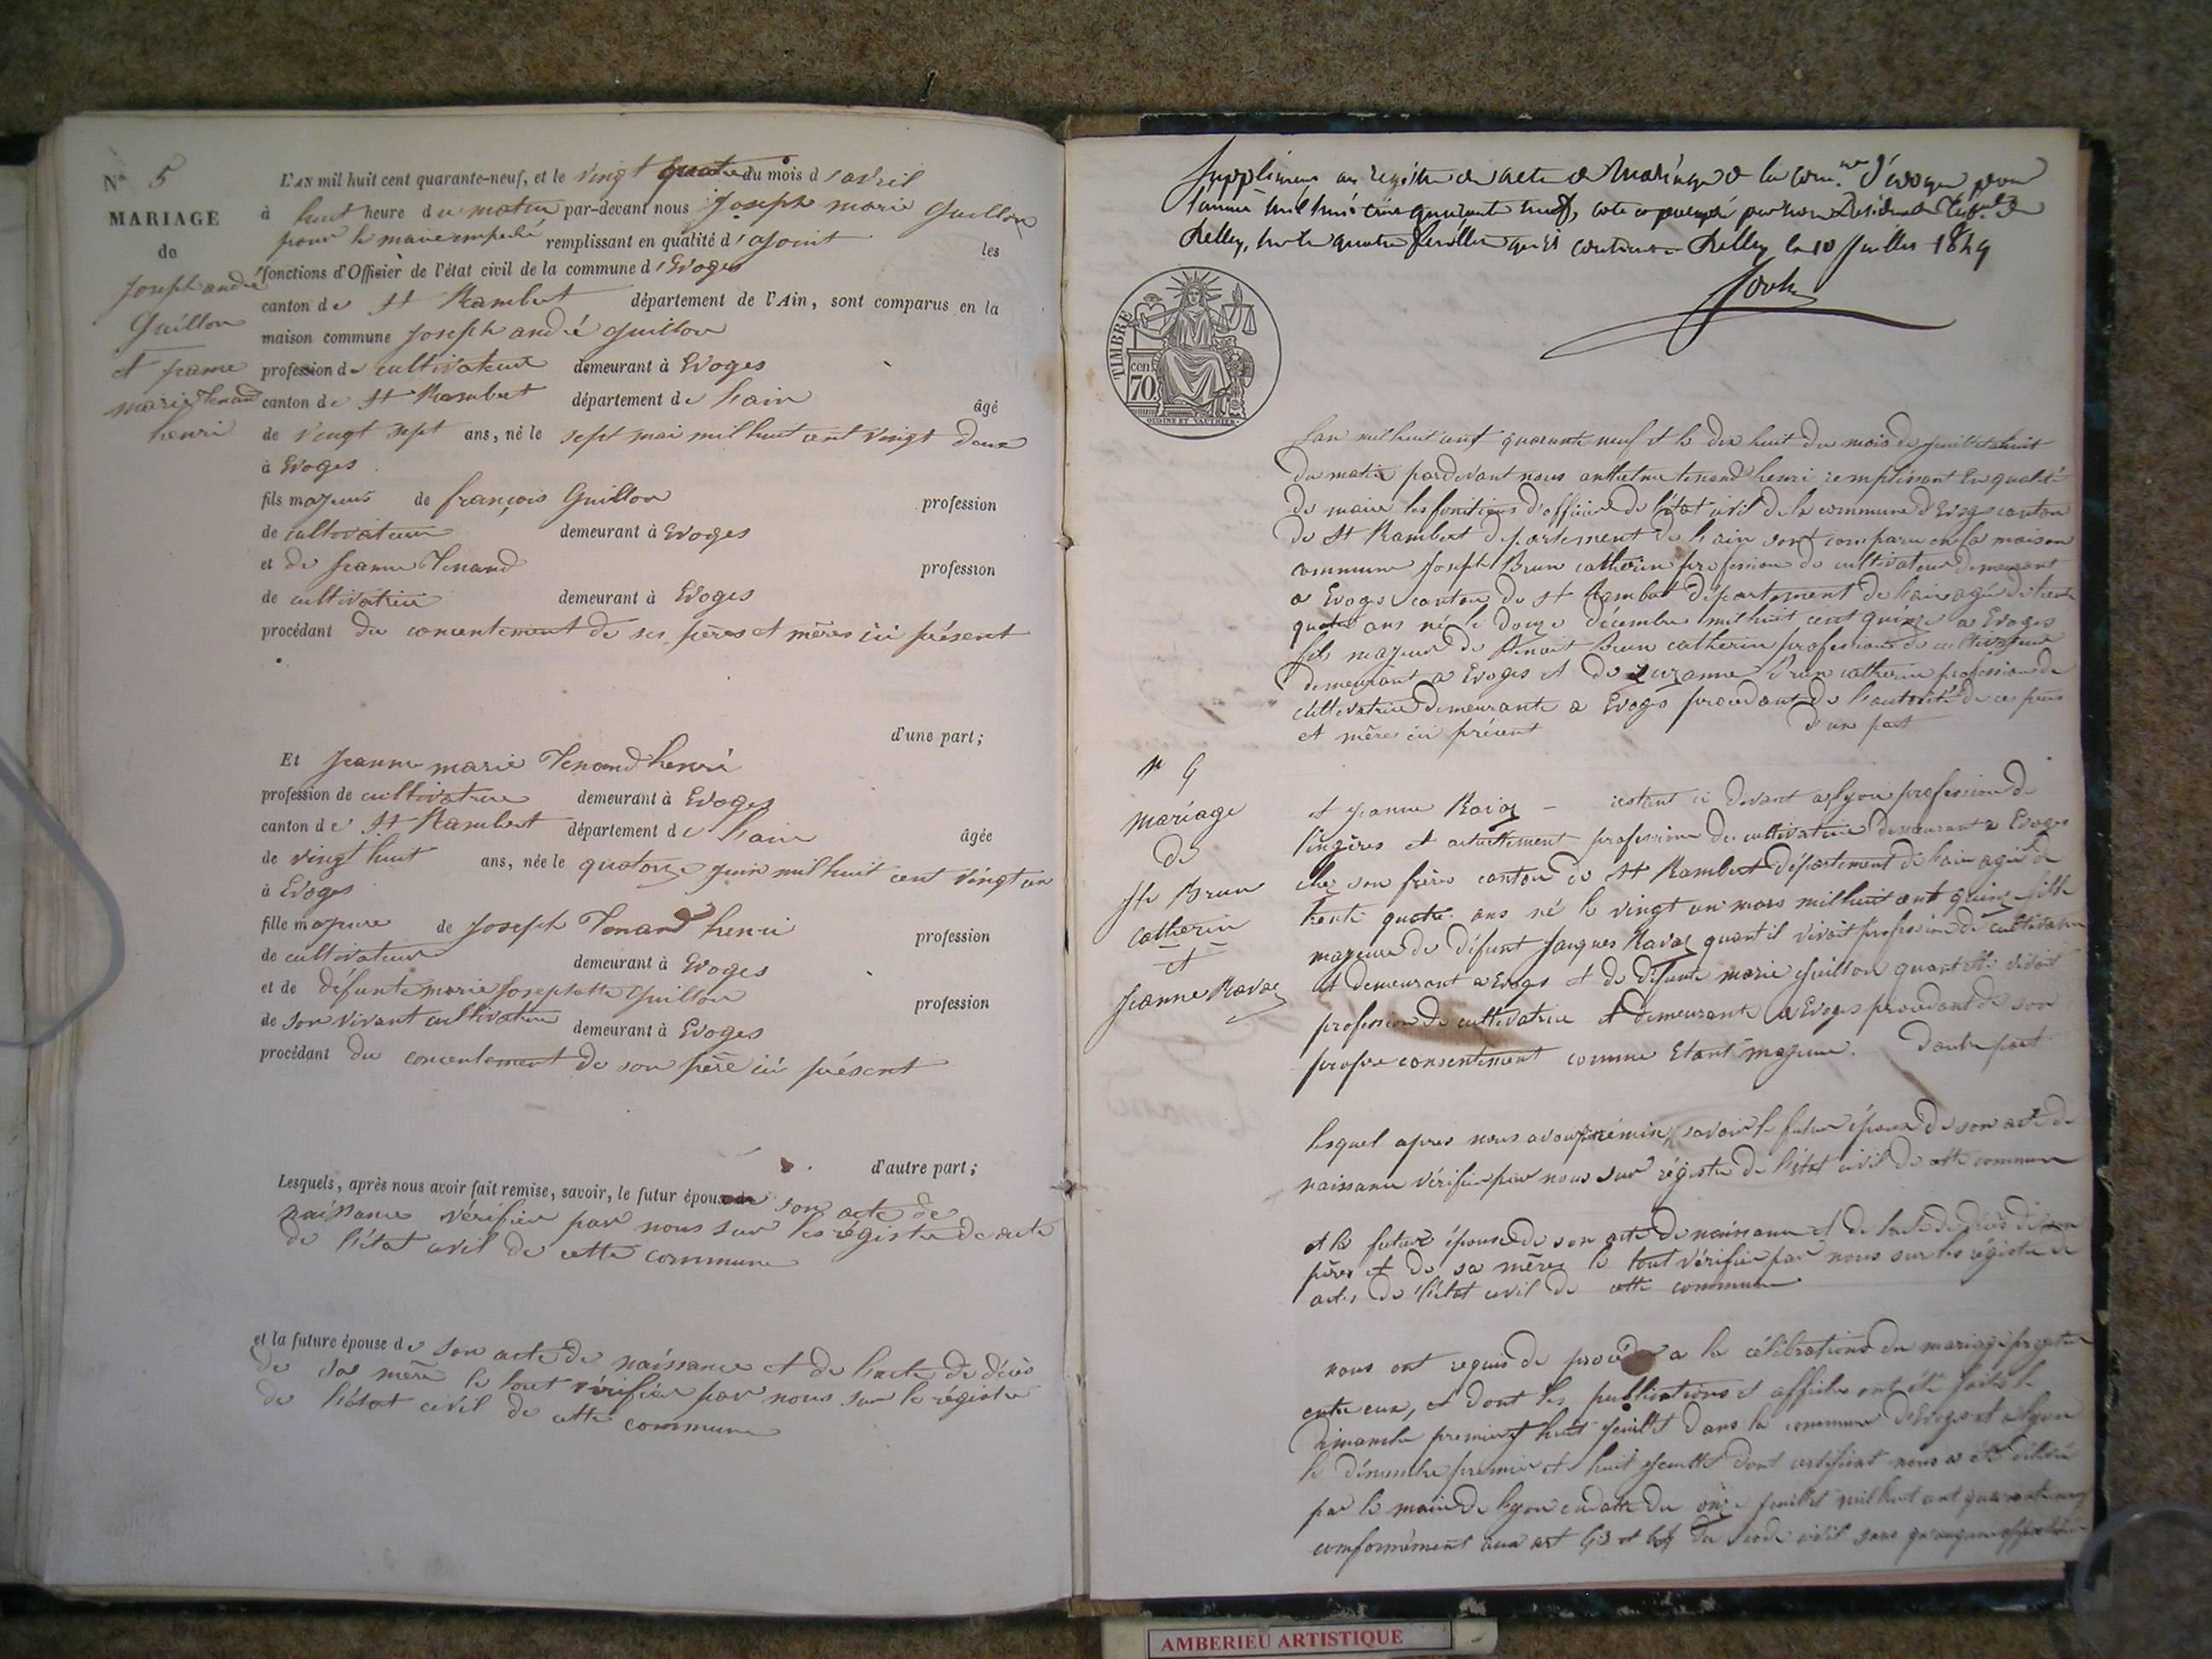 N° 5
MARIAGE
de
Joseph andré
Guillon
et jeanne
marie Tenand
henri
L'AN mil huit cent quarante-neuf, et le vingt quatre du mois d'avril
à huit heure du matin par-devant nous Joseph marie Guillon
pour le maire empeché remplissant en qualité d'ajoint les
fonctions d'Officier de l'état civil de la commune d'Evoges
canton de St Rambert département de l'Ain, sont comparus en la
maison commune Joseph andré Guillon
profession de cultivateur demeurant à Evoges
canton de St Rambert département de lain âgé
de vingt sept ans, né le sept mai mil huit cent vingt deux
à Evoges
fils majeur de françois Guillon profession
de cultivateur demeurant à Evoges
et de jeanne Tenand profession
de cultivatrice demeurant à Evoges
procédant du concentement de ses pères et mères ici présent
d'une part;
Et Jeanne marie Tenand henri
profession de cultivatrice demeurant à Evoges
canton de St Rambert département de lain âgée
de vingt huit ans, née le quatorze juin mil huit cent vingt un
à Evoges
fille majeure de Joseph Tenand henri profession
de cultivateur demeurant à Evoges
et de défunte marie Josephatte Guillon profession
de son vivant cultivatrice demeurant à Evoges
procédant du concentement de son père ici présent
d'autre part;
Lesquels, après nous avoir fait remise, savoir, le futur époux de son acte de
naissance vérifier par nous sur les régistre de acte
de l'état civil de cette commune
et la future épouse de son acte de naissance et de l'acte de décès
de sa mère le tout vérifier par nous sur le régistre
de l'état civil de cette commune
Supplément au registre des actes de Mariage de la com.ne d'évoges pour
l'année mil huit cent quarante neuf, coté et paraphé par nous Président du Trib.al de
Belley, sur les quatre feuilles qu'il contient. Belley le 10 Juillet 1849
TIMBRE
70 cen
OUDINÉ ET GAUTHIER
N° 6
Mariage
de
Jh Brun
Catherin
et
Jeanne Ravaz
Lan mil huit cent quarante neuf et le dix huit du mois de juillet à huit
du matin pardevant nous anthelme tenand henri remplissant en qualité
de maire les fonctions d'officier de l'état civil de la commune d'Evoges canton
de St Rambert département de lain sont comparu en la maison
commune Joseph Brun catherin profession de cultivateur demeurant
a Evoges canton de St Rambert département de lain agé de trente
quatre ans né le douze décembre mil huit cent quinze a Evoges
fils majeur de Benoit Brun catherin profession de cultivateur
demeurant a Evoges et de suzanne Brun catherin profession de
cultivatrice demeurante a Evoges procedant de l'autorité de ces pères
et mères ici présent d'un part
et jeanne Ravaz – restant ci devant a lyon profession de
lingères et actuellement profession de cultivatrice demeurant a Evoges
chez son frère canton de St Rambert département de lain agée de
trente quatre ans né le vingt un mars mil huit cent quinze fille
majeure de défunt Jacques Ravaz quant il vivait profession de cultivateur
et demeurant a Evoges et de défunte marie Guillon quant elle vivait
profession de cultivatrice et demeurante a Evoges procedant de son
propre consentement comme Etant majeure. Dautre part
lesquel apres nous avoir remise, savoir le futur époux de son acte de
naissance vérifier par nous sur régistre de l'état civil de cette commune
et la future épouse de son acte de naissance et de l'acte de décès de son
père et de sa mère le tout vérifier par nous sur les régistre de
actes de l'état civil de cette commune
nous ont requis de procéder a la célébration du mariage projeté
entre eux, et dont les publications et affiches ont été faite le
dimanche premier et huit juillet dans la commune d'Evoges et a lyon
le dimanche premier et huit juillet dont certificat nous a été délivré
par le maire de lyon en datte du onze juillet mil huit cent quarante neuf
conformément aux art 63 et 64 du code civil sans qu'aucune opposition
AMBERIEU ARTISTIQUE